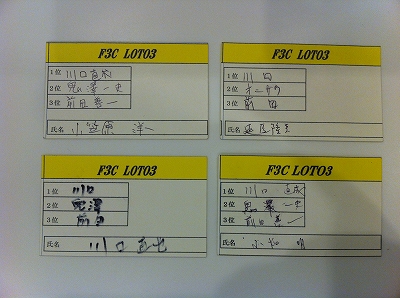 F3C LOTO3
1位 川口直樹
2位 鬼澤一史
3位 前田善一
氏名 小笠原 洋一
F3C LOTO3
1位 川口
2位 オニザワ
3位 前田
氏名
F3C LOTO3
1位 川口
2位 鬼澤
3位 前田
氏名 川口
F3C LOTO3
1位 川口
2位 鬼澤 一史
3位 前田
氏名